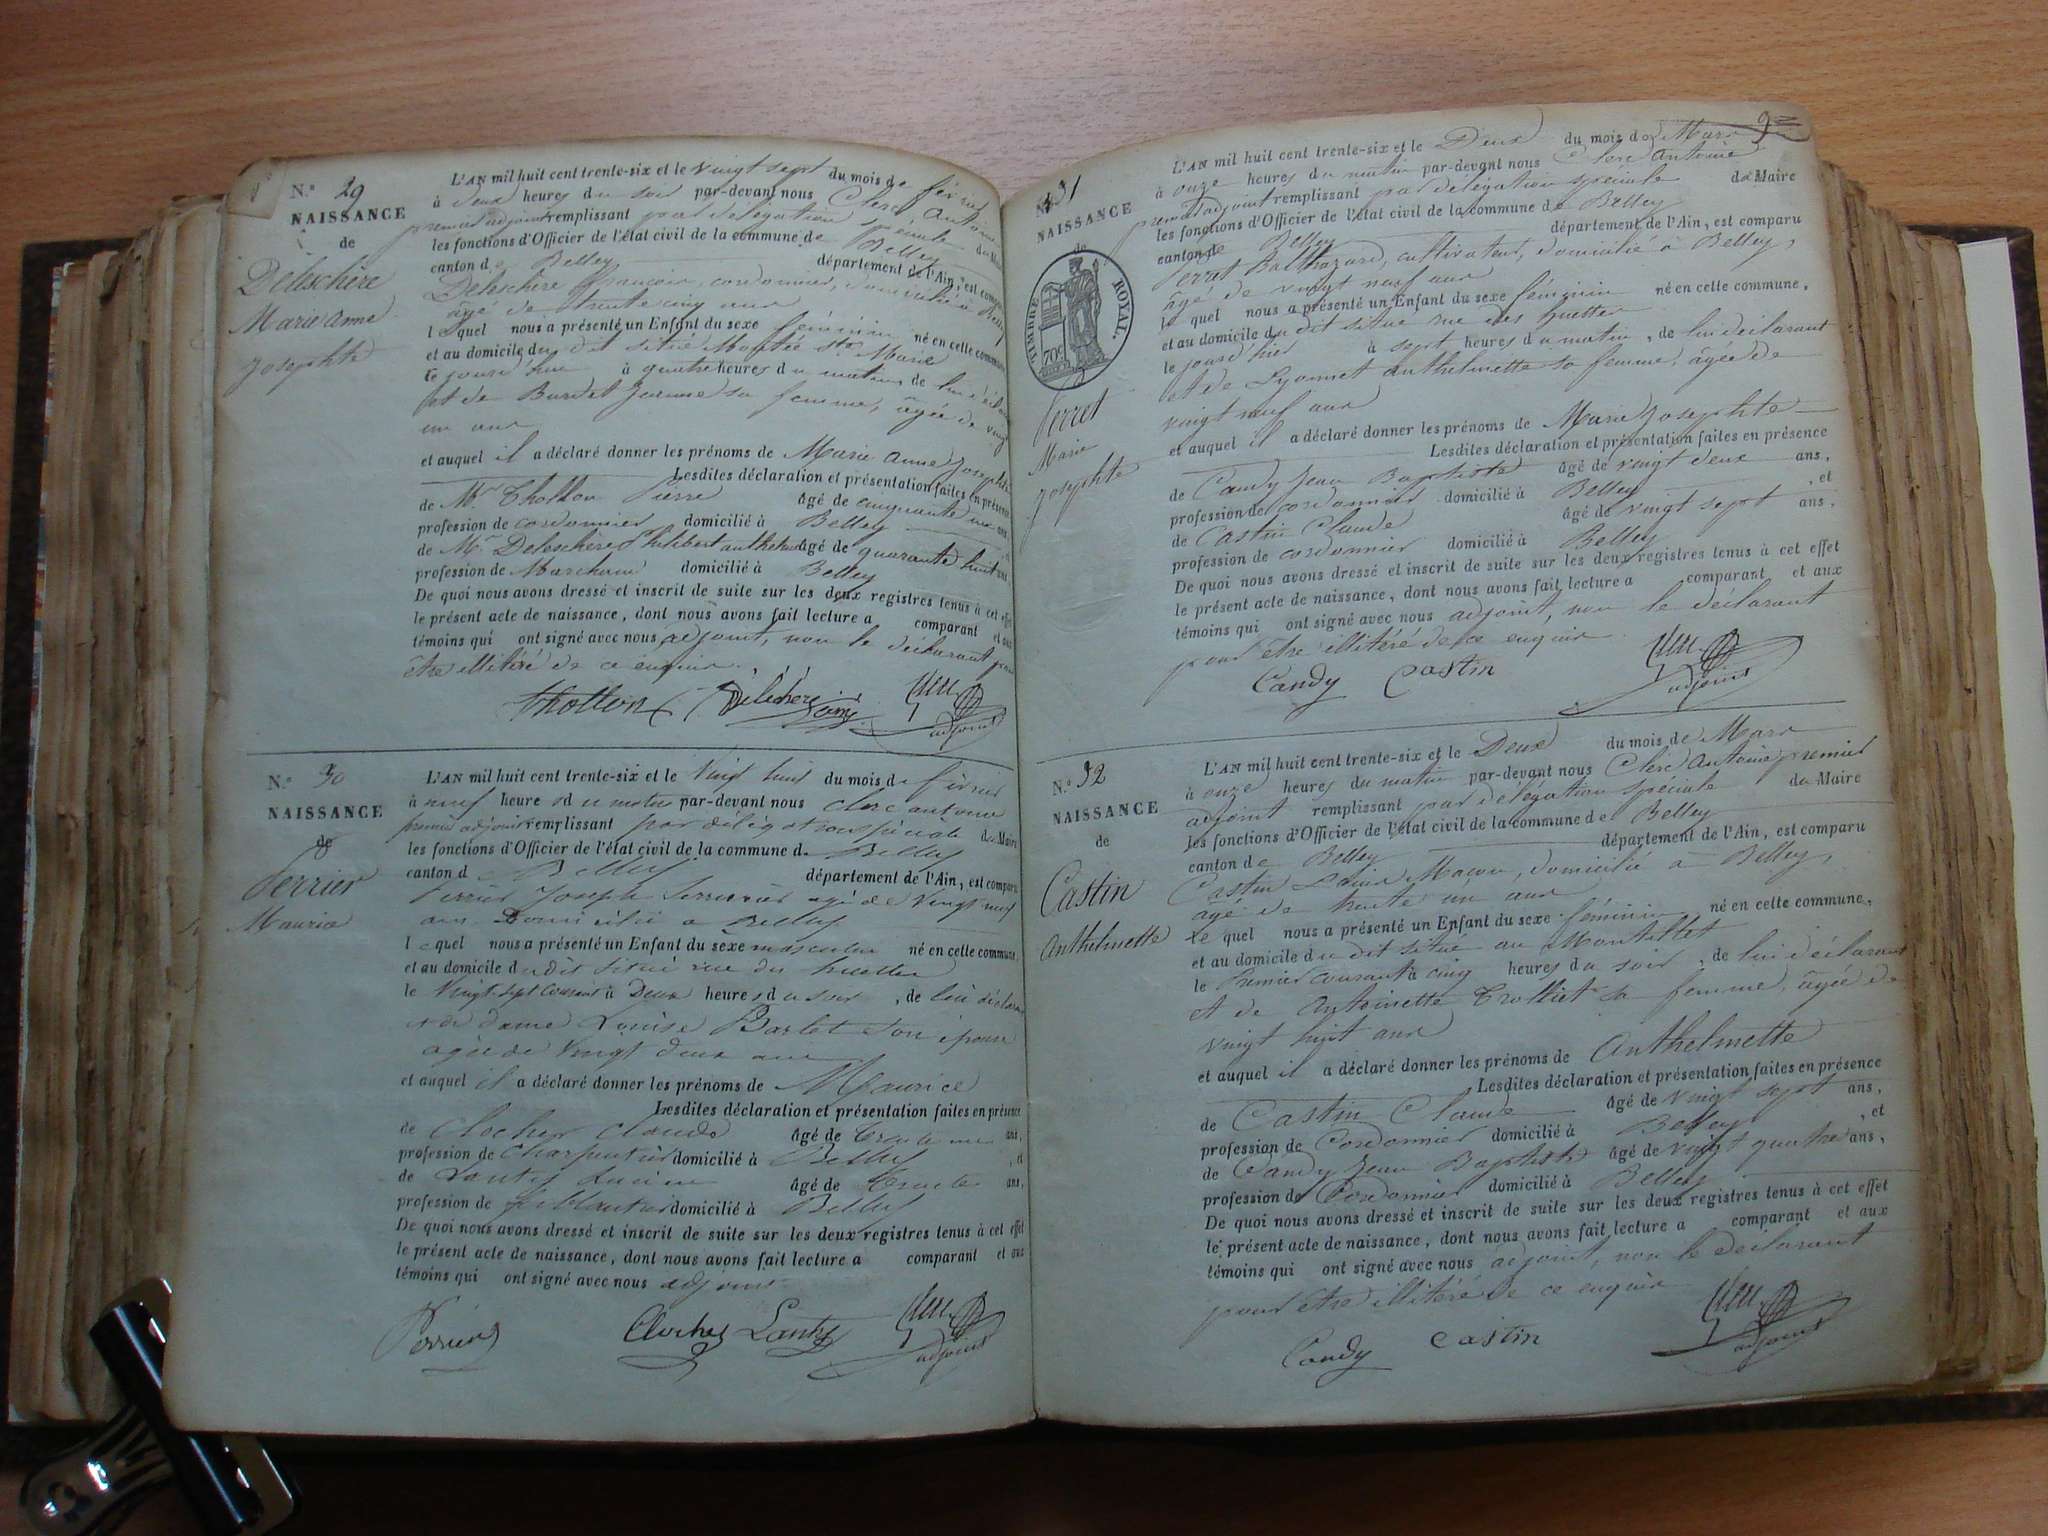 N.º 29
NAISSANCE
de
Deleschère
Marie anne
Josephte
L'AN mil huit cent trente-six et le vingt sept du mois de février
à deux heures du soir par-devant nous Clerc Antoine
premier adjoint remplissant par délégation spéciale du Maire
les fonctions d'Officier de l'état civil de la commune de Belley
canton de Belley département de l'Ain, est comparu
Deleschère françois, cordonnier, domicilié à Belley
âgé de trente cinq ans
lequel nous a présenté un Enfant du sexe féminin né en cette commune
et au domicile du dit situé Montée ste Marie
le jourd'hui à quatre heures du matin, de lui déclarant
et de Burdet Jeanne sa femme, âgée de vingt
un ans
et auquel il a déclaré donner les prénoms de Marie Anne Josephte
Lesdites déclaration et présentation faites en présence
de Mr Thollon Pierre âgé de cinquante un ans,
profession de cordonnier domicilié à Belley
de Mr Deleschère Philibert anthelme âgé de quarante huit ans,
profession de Marchand domicilié à Belley
De quoi nous avons dressé et inscrit de suite sur les deux registres tenus à cet effet
le présent acte de naissance, dont nous avons fait lecture a comparant et aux
témoins qui ont signé avec nous adjoint, non le déclarant pour
être illitéré de ce enquis.
Thollon Deleschère ainé
adjoint
N.º 30
NAISSANCE
de
Perrier
Maurice
L'AN mil huit cent trente-six et le Vingt huit du mois de février
à neuf heures du matin par-devant nous clerc antoine
premier adjoint remplissant par délégation spéciale du Maire
les fonctions d'Officier de l'état civil de la commune de Belley
canton de Belley département de l'Ain, est comparu
Perrier Joseph Serrurier agé de Vingt neuf
ans Domicilié a Belley
lequel nous a présenté un Enfant du sexe masculin né en cette commune,
et au domicile du dit situé rue du
le Vingt-sept Courant à Deux heures du soir, de lui déclarant
et de dame Louise Barlet son épouse
agée de Vingt deux ans
et auquel il a déclaré donner les prénoms de Maurice
Lesdites déclaration et présentation faites en présence
de Clocher Claude âgé de trente un ans,
profession de Charpentier domicilié à Belley, et
de âgé de trente ans,
profession de ferblantier domicilié à Belley
De quoi nous avons dressé et inscrit de suite sur les deux registres tenus à cet effet
le présent acte de naissance, dont nous avons fait lecture a comparant et aux
témoins qui ont signé avec nous adjoint
Perrier Clocher Lanty
adjoint
9
N.º 31
NAISSANCE
de
TIMBRE ROYAL.
70c
Perret
Marie
Josephte
L'AN mil huit cent trente-six et le Deux du mois de Mars
à onze heures du matin par-devant nous Clerc Antoine
premier adjoint remplissant par délégation spéciale du Maire
les fonctions d'Officier de l'état civil de la commune de Belley
canton de Belley département de l'Ain, est comparu
Perret Balthazard, cultivateur, domicilié à Belley,
âgé de vingt neuf ans
lequel nous a présenté un Enfant du sexe féminin né en cette commune,
et au domicile du dit situé rue des
le jourd'hier à sept heures du matin, de lui déclarant
et de Lyonnet anthelmette sa femme, âgée de
vingt neuf ans
et auquel il a déclaré donner les prénoms de Marie Josephte
Lesdites déclaration et présentation faites en présence
de Candy Jean Baptiste âgé de vingt deux ans,
profession de cordonnier domicilié à Belley, et
de Castin Claude âgé de vingt sept ans,
profession de cordonnier domicilié à Belley
De quoi nous avons dressé et inscrit de suite sur les deux registres tenus à cet effet
le présent acte de naissance, dont nous avons fait lecture a comparant et aux
témoins qui ont signé avec nous adjoint, non le déclarant
pour être illitéré de ce enquis.
Candy Castin
adjoint
N.º 32
NAISSANCE
de
Castin
Anthelmette
L'AN mil huit cent trente-six et le Deux du mois de Mars
à onze heures du matin par-devant nous Clerc Antoine premier
adjoint remplissant par délégation spéciale du Maire
les fonctions d'Officier de l'état civil de la commune de Belley
canton de Belley département de l'Ain, est comparu
Castin Maçon, domicilié à Belley,
âgé de trente un ans
lequel nous a présenté un Enfant du sexe féminin né en cette commune,
et au domicile du dit situé au Montillet
le Premier courant à cinq heures du soir, de lui déclarant
et de Antoinette Trolliet sa femme, âgée de
vingt huit ans
et auquel il a déclaré donner les prénoms de Anthelmette
Lesdites déclaration et présentation faites en présence
de Castin Claude âgé de vingt sept ans,
profession de Cordonnier domicilié à Belley, et
de Candy Jean Baptiste âgé de vingt quatre ans,
profession de Cordonnier domicilié à Belley
De quoi nous avons dressé et inscrit de suite sur les deux registres tenus à cet effet
le présent acte de naissance, dont nous avons fait lecture a comparant et aux
témoins qui ont signé avec nous adjoint, non le déclarant
pour être illitéré de ce enquis
Candy Castin
adjoint